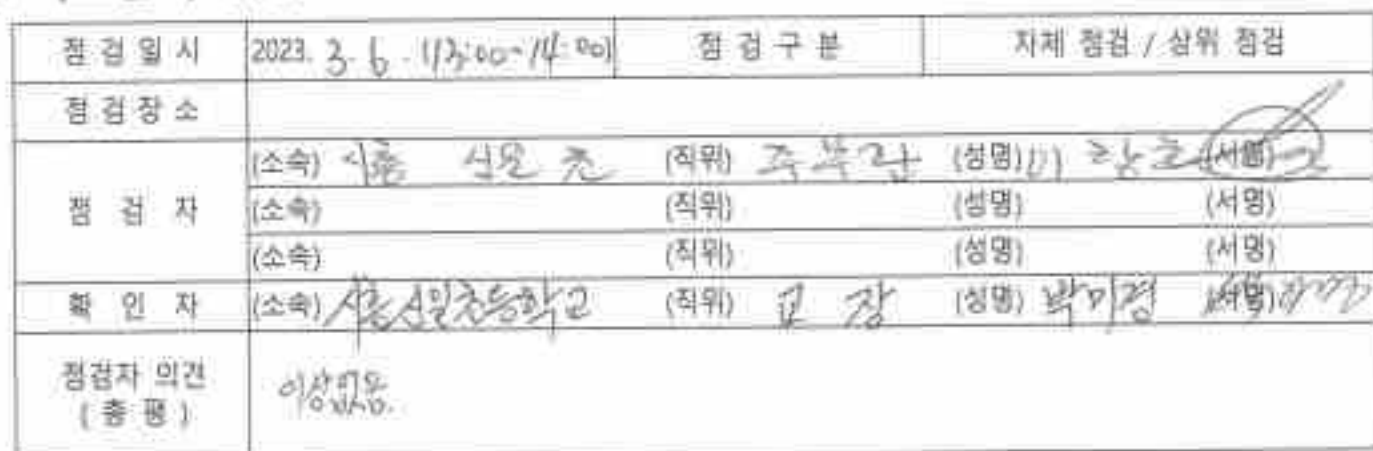 점 검 일 시 2023. 3. 6. (13:00-14:00) 점 검 구 분 자체 점검 / 상위 점검
점 검 장 소
(소속) 시흥 신일초 (직위) (성명) (서명)
점 검 자 (소속) (직위) (성명) (서명)
(소속) (직위) (성명) (서명)
확 인 자 (소속) 시흥신일초등학교 (직위) 교 장 (성명) 박미경 (서명)
점검자 의견
( 총 평 )
이상없음.